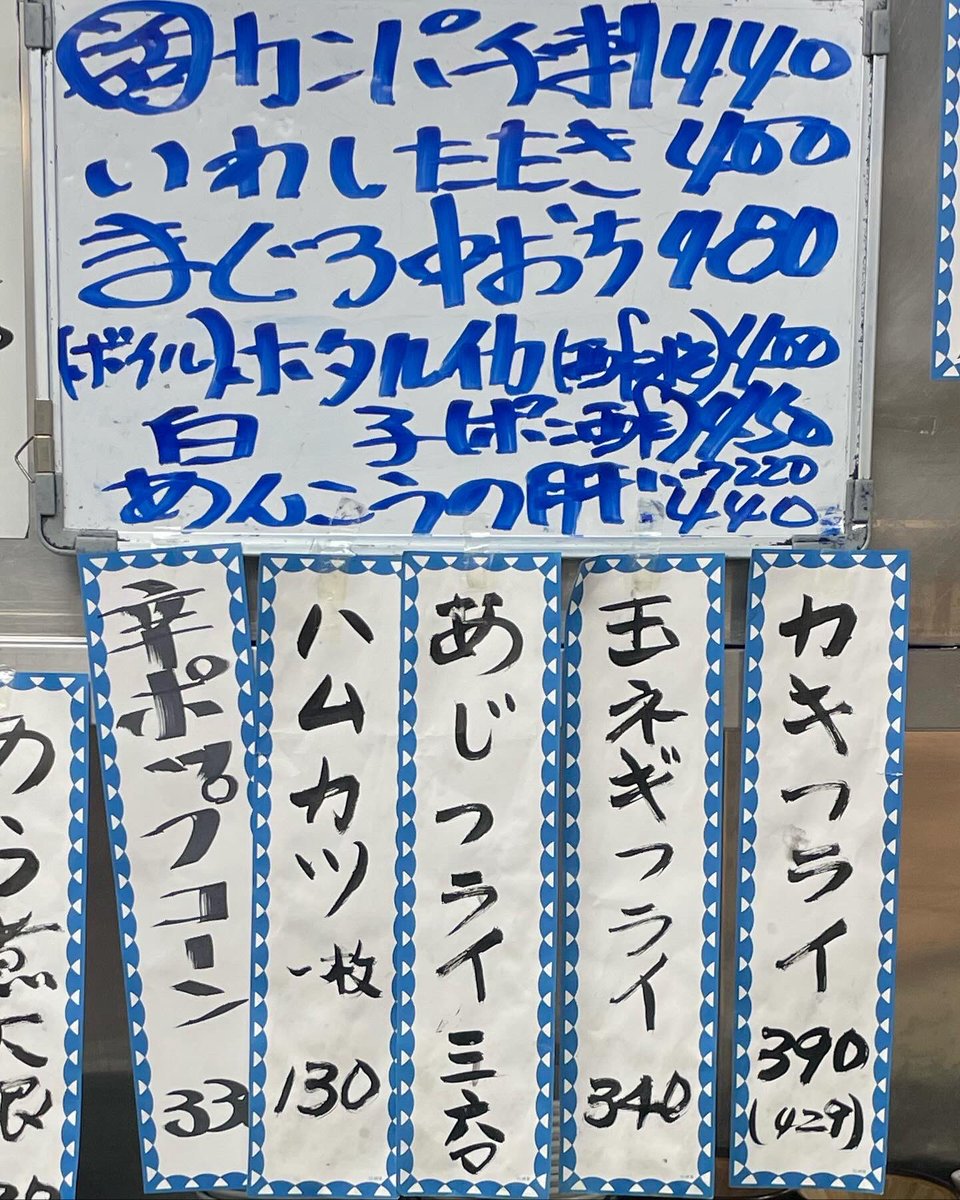 カンパチ刺440
いわしたたき400
まぐろ中おち480
(ボイル)ホタルイカ(酢みそ)400
白子(ポン酢)450
あんこうの肝ハーフ220
440
カキフライ
390
(429)
玉ネギフライ
340
あじフライ
三六〇
ハムカツ
一枚
130
辛ポップコーン
33